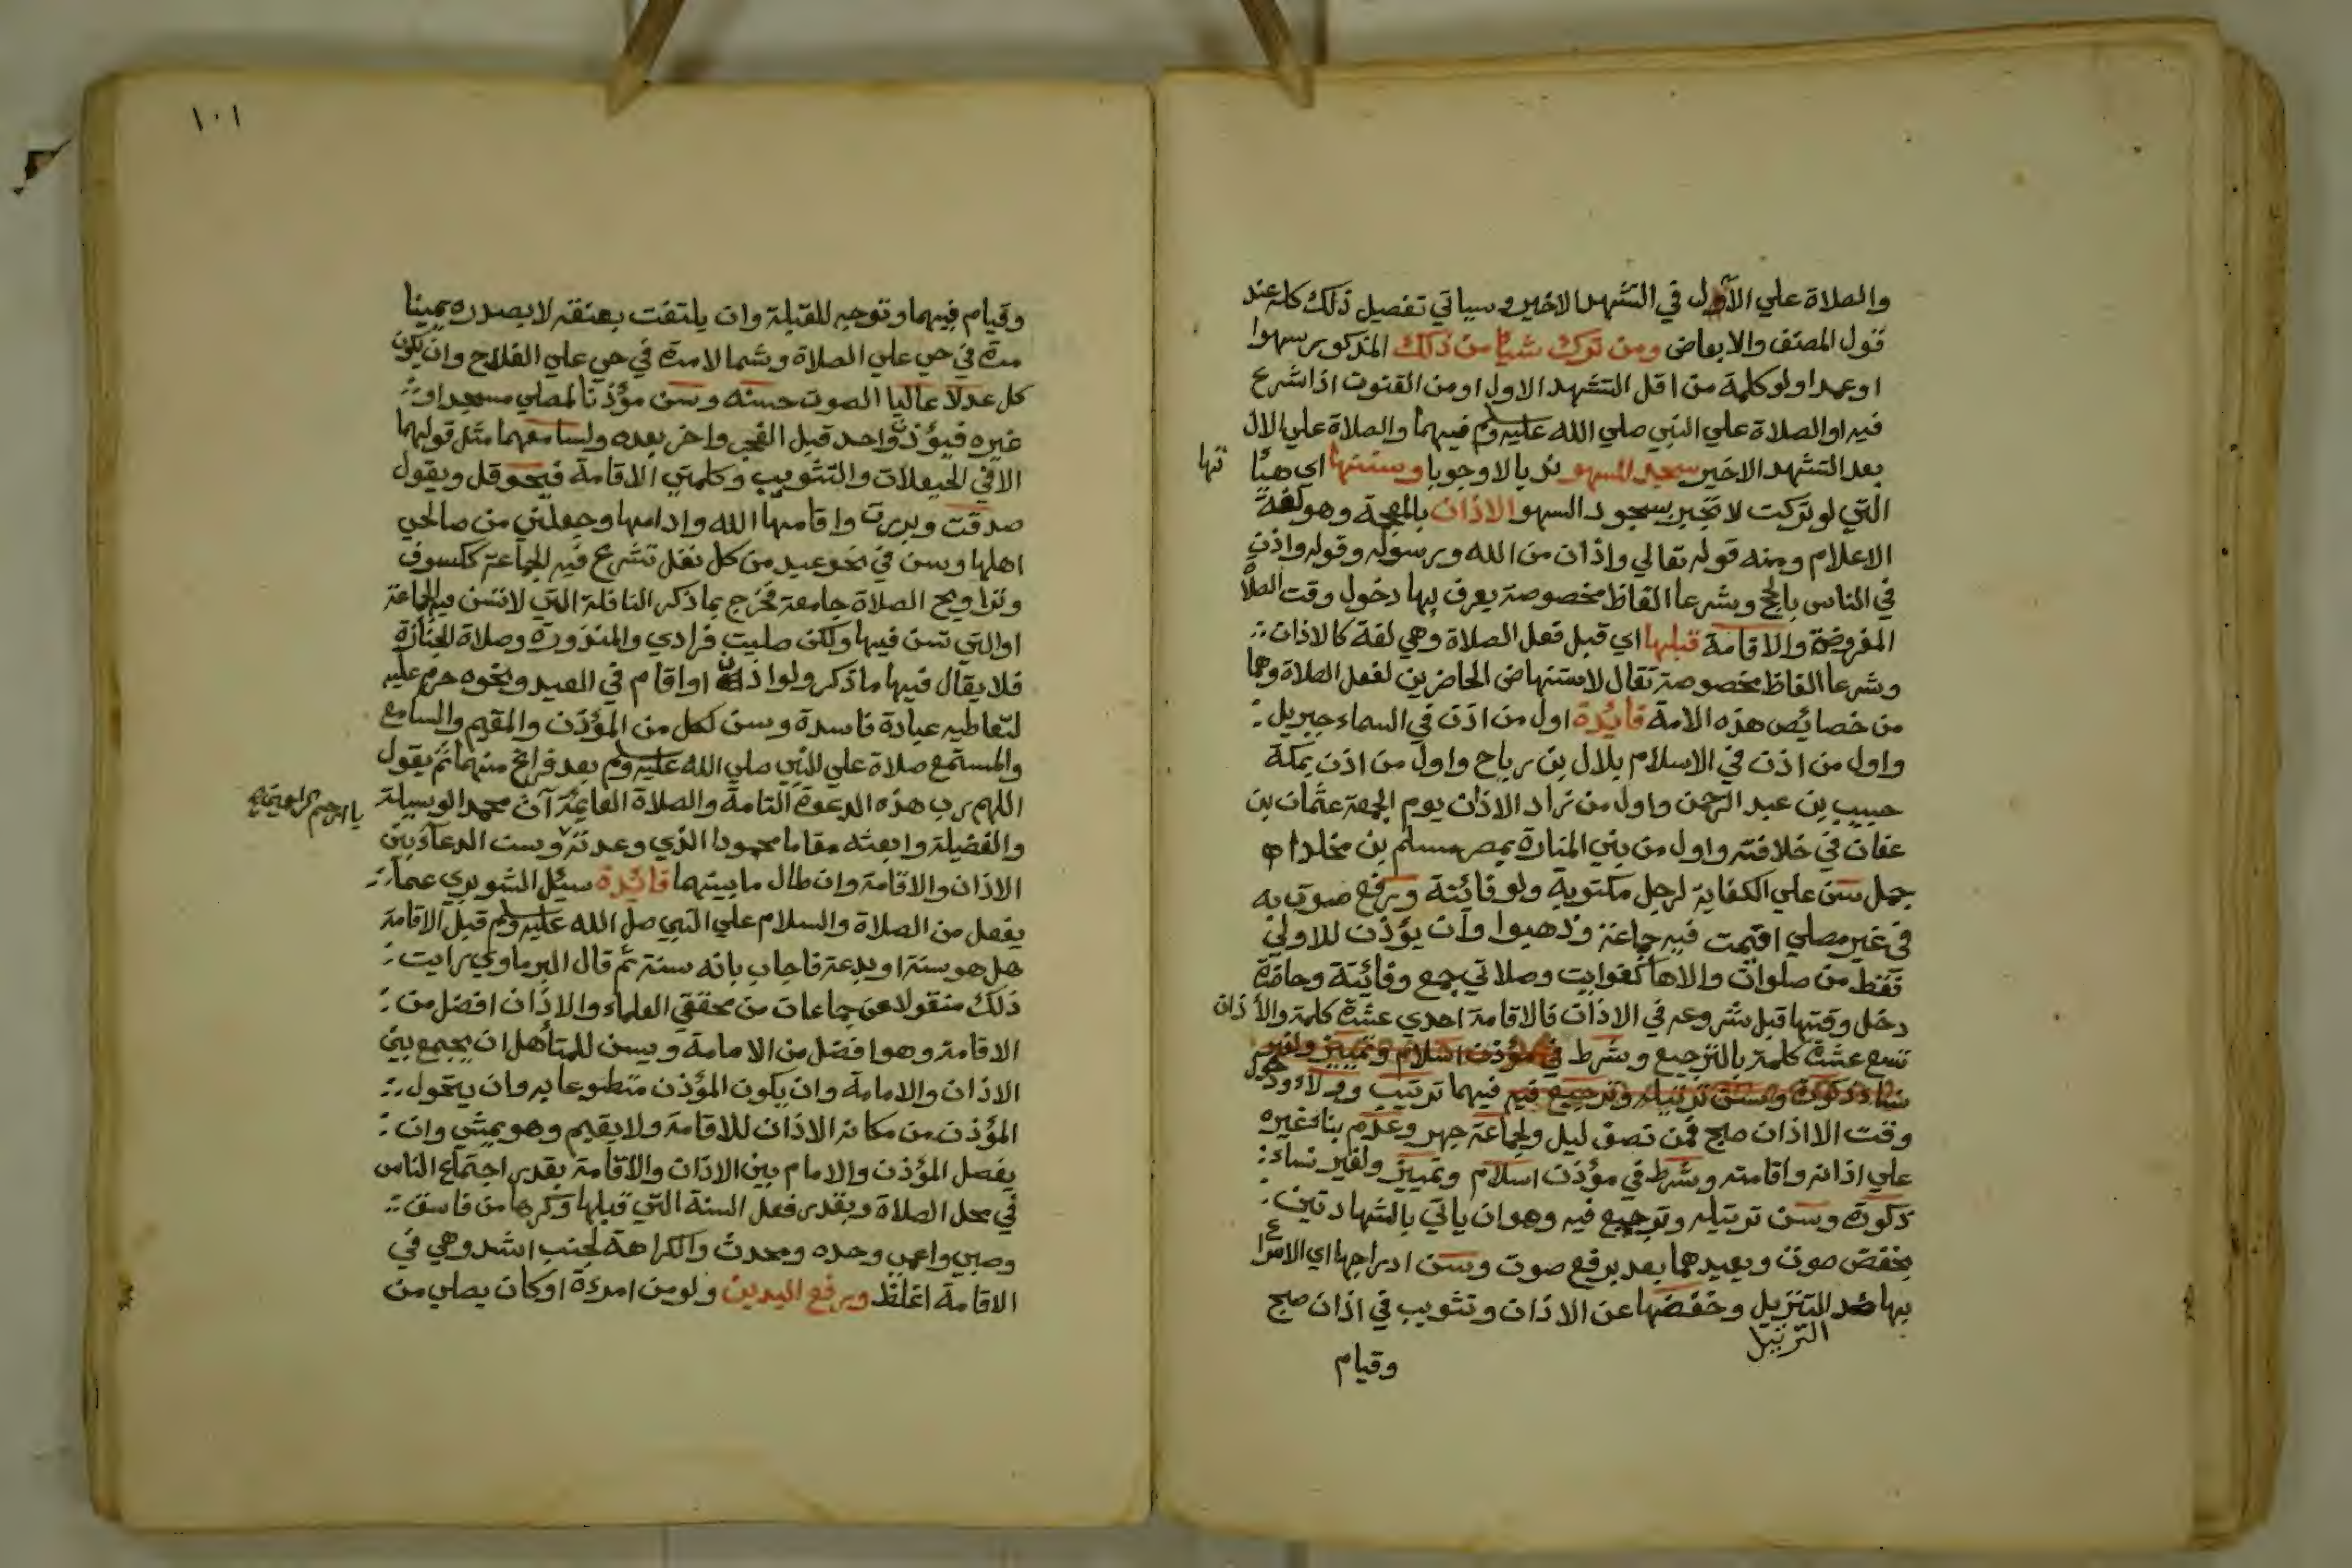 والصلاة علي الآل في التشهد الاخير وسياتي تفصيل ذلك كله عند
قول المصنف والابعاض ومن ترك شيا من ذلك المذكور سهوا
او عمدا ولو كلمة من اقل التشهد الاول او من القنوت اذا شرع
فيه او الصلاة علي النبي صلي الله عليه وسلم فيهما والصلاة علي الال
بعد التشهد الاخير سجد للسهو ندبا لا وجوبا وسننها اي هيئا
تها
التي لو تركت لا تجبر بسجود السهو الاذان بالمعجمة وهو لغة
الاعلام ومنه قوله تعالي واذان من الله ورسوله وقوله واذن
في الناس بالحج وشرعا الفاظ مخصوصة يعرف بها دخول وقت الصلاة
المفروضة والاقامة قبلها اي قبل فعل الصلاة وهي لغة كالاذان
وشرعا الفاظ مخصوصة تقال لاستنهاض الحاضرين لفعل الصلاة وهما
من خصائص هذه الامة فائدة اول من اذن في السماء جبريل
واول من اذن في الاسلام بلال بن رباح واول من اذن بمكة
حبيب بن عبد الرحمن واول من زاد الاذان يوم الجمعة عثمان بن
عفان في خلافته واول من بني المنارة بمصر مسلم بن مخلد اه
جمل سن علي الكفاية لرجل مكتوبة ولو فائتة ورفع صوت به
في غير مصلي اقيمت فيه جماعة وذهبوا وان يؤذن للاولي
فقط من صلوات والاها كفوايت وصلاتي جمع وفائتة وحاضرة
دخل وقتها قبل شروعه في الاذان فالاقامة احدي عشرة كلمة والاذان
تسع عشرة كلمة بالترجيع وشرط في مؤذن اسلام وتمييز ولغير
نساء ذكورة وسن ترتيله وترجيع فيه فيهما ترتيب وولاء ودخول
وقت الا اذان صبح فمن نصف ليل ولجماعة جهر وعدم بناء غيره
علي اذانه واقامته وشرط في مؤذن اسلام وتمييز ولغير نساء
ذكورة وسن ترتيله وترجيع فيه وهو ان ياتي بالشهادتين
بخفض صوت ويعيدهما بعد برفع صوت وسن ادراجها اي الاسراع
بها ضد التنزيل وخفضها عن الاذان وتثويب في اذان صبح
الترتيل
وقيام
١٠١
وقيام فيهما وتوجه للقبلة وان يلتفت بعنقه لا بصدره يمينا
مرة في حي علي الصلاة وشمالا مرة في حي علي الفلاح وان يكون
كل عدلا عاليا الصوت حسنه وسن مؤذنا لمصلي مسجد او
غيره فيؤذن واحد قبل الفجر واخر بعده ولسامعهما مثل قولهما
الا في الحيعلات والتثويب وكلمتي الاقامة فيحوقل ويقول
صدقت وبررت واقامها الله وادامها وجعلني من صالحي
اهلها وسن في نحو عيد من كل نفل تشرع فيه الجماعة ككسوف
وتراويح الصلاة جامعة فخرج بما ذكر النافلة التي لا تسن فيها الجماعة
او التي تسن فيها ولكن صليت فرادي والمنذورة وصلاة الجنازة
فلا يقال فيها ما ذكر ولو اذن او اقام في العيد ونحوه حرم عليه
لتعاطيه عبادة فاسدة وسن لكل من المؤذن والمقيم والسامع
والمستمع صلاة علي النبي صلي الله عليه وسلم بعد فراغ منهما ثم يقول
اللهم رب هذه الدعوة التامة والصلاة القائمة آت محمدا الوسيلة
والفضيلة وابعثه مقاما محمودا الذي وعدته وسن الدعاء بين
يا ارحم الراحمين
الاذان والاقامة وان طال ما بينهما فائدة سئل الشوبري عما
يفعل من الصلاة والسلام علي النبي صلي الله عليه وسلم قبل الاقامة
هل هو سنة او بدعة فاجاب بانه سنة ثم قال البرماوي رايت
ذلك منقولا عن جماعات من محققي العلماء والاذان افضل من
الاقامة وهو افضل من الامامة ويسن للمتأهل ان يجمع بين
الاذان والامامة وان يكون المؤذن متطوعا به وان يتحول
المؤذن من مكانه الاذان للاقامة ولا يقيم وهو يمشي وان
يفصل المؤذن والامام بين الاذان والاقامة بقدر اجتماع الناس
في محل الصلاة وبقدر فعل السنة التي قبلها وكرها من فاسق
وصبي واعمي وحده ومحدث والكراهة لجنب اشد وهي في
الاقامة اغلظ ورفع اليدين ولو من امرءة او كان يصلي من